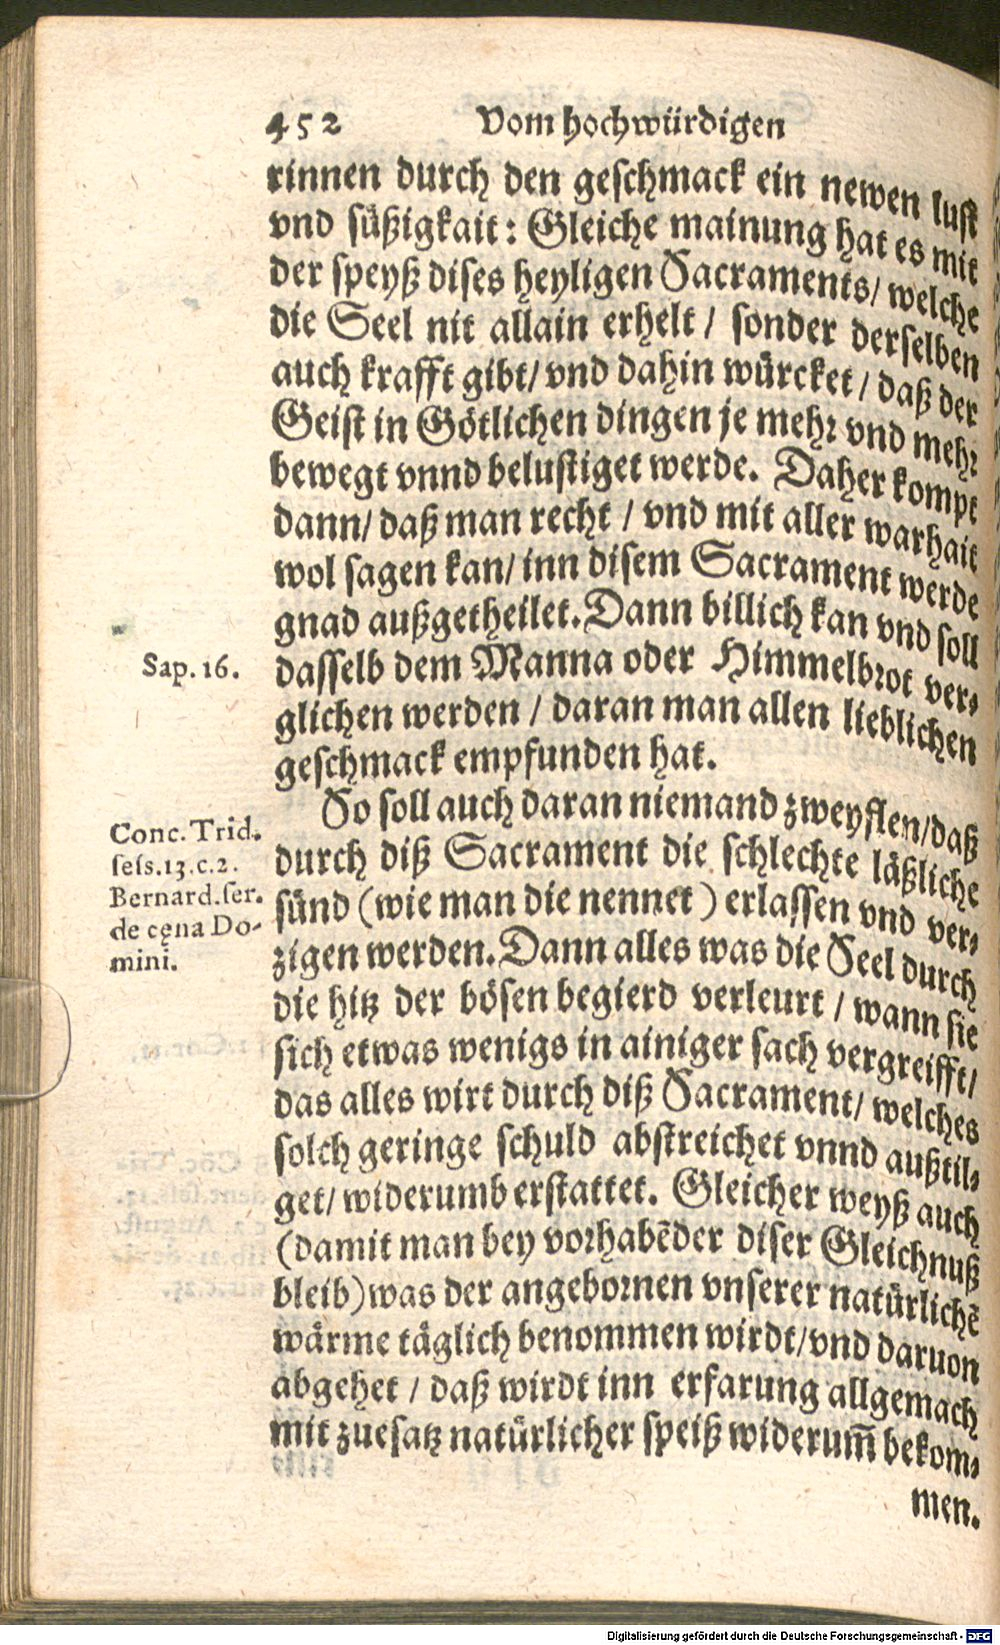 452 Vom hochwürdigen
rinnen durch den geschmack ein newen lust
vnd süßigkait: Gleiche mainung hat es mit
der speyß dises heyligen Sacraments/ welche
die Seel nit allain erhelt / sonder derselben
auch krafft gibt/ vnd dahin würcket / daß der
Geist in Götlichen dingen je mehr vnd mehr
bewegt vnnd belustiget werde. Daher kompt
dann/ daß man recht / vnd mit aller warhait
wol sagen kan/ inn disem Sacrament werde
gnad außgetheilet. Dann billich kan vnd soll
Sap. 16.
dasselb dem Manna oder Himmelbrot ver-
glichen werden / daran man allen lieblichen
geschmack empfunden hat.
So soll auch daran niemand zweyflen/ daß
Conc. Trid.
sess. 13. c. 2.
Bernard. ser.
de cęna Do-
mini.
durch diß Sacrament die schlechte läßliche
sünd (wie man die nennet) erlassen vnd ver-
zigen werden. Dann alles was die Seel durch
die hitz der bösen begierd verleurt / wann sie
sich etwas wenigs in ainiger sach vergreifft/
das alles wirt durch diß Sacrament/ welches
solch geringe schuld abstreichet vnnd außtil-
get/ widerumb erstattet. Gleicher weyß auch
(damit man bey vorhabēder diser Gleichnuß
bleib) was der angebornen vnserer natürlichē
wärme täglich benommen wirdt/ vnd daruon
abgehet / daß wirdt inn erfarung allgemach
mit zuesatz natürlicher speiß widerum̄ bekom-
men.
Digitalisierung gefördert durch die Deutsche Forschungsgemeinschaft - DFG